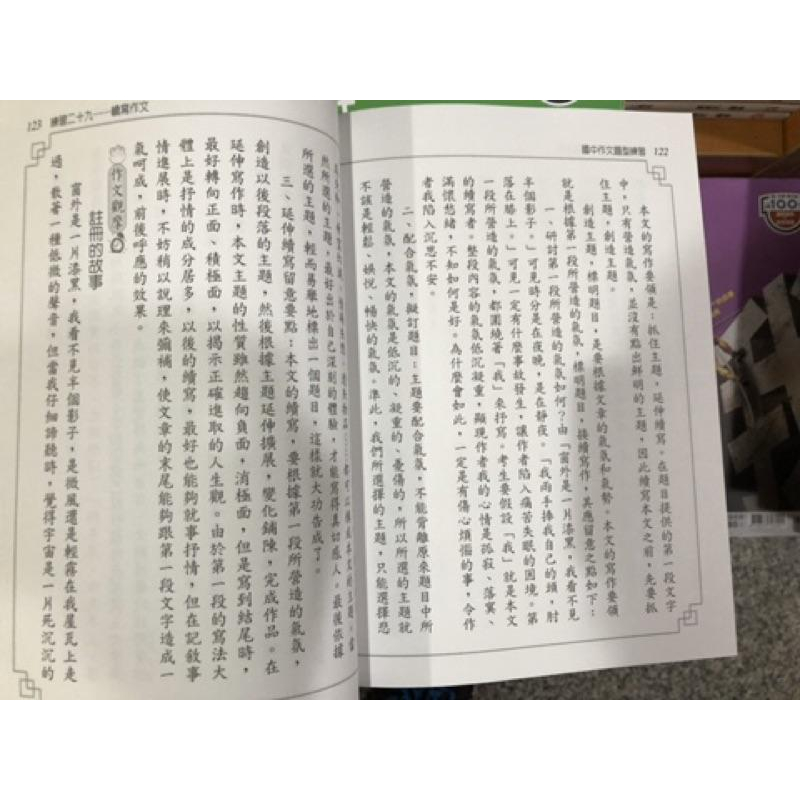 國中作文題型練習 122
本文的寫作要領是：抓住主題，延伸續寫。在題目提供的第一段文字
中，只有營造氣氛，並沒有點出鮮明的主題，因此續寫本文之前，先要抓
住主題，創造主題。
創造主題，標明題目，是要根據文章的氣氛和氣勢。本文的寫作要領
就是根據第一段所營造的氣氛，標明題目，接續寫作，其應留意之點如下：
一、研討第一段所營造的氣氛如何？由「窗外是一片漆黑，我看不見
半個影子。」可見時分是在夜晚，是在靜夜。「我兩手捧我自己的頭，肘
落在膝上。」可見一定有什麼事故發生，讓作者陷入痛苦失眠的困境。第
一段所營造的氣氛，都圍繞著「我」來抒寫。考生要假設「我」就是本文
的續寫者。整段內容的氣氛低沉凝重，顯現作者我的心情是孤寂、落寞、
滿懷愁緒，不知如何是好。為什麼會如此，一定是有傷心煩惱的事，令作
者我陷入沉思不安。
二、配合氣氛，擬訂題目：主題要配合氣氛，不能背離原來題目中所
營造的氣氛，本文的氣氛是低沉的、凝重的、憂傷的，所以所選的主題就
不該是輕鬆、娛悅、暢快的氣氛。準此，我們所選擇的主題，只能選擇忍
123 練習二十九——續寫作文
然所選的主題，最好出於自己深刻的體驗，才能寫得真切感人。最後依據
所選的主題，輕而易舉地標出一個題目，這樣就大功告成了。
三、延伸續寫留意要點：本文的續寫，要根據第一段所營造的氣氛，
創造以後段落的主題，然後根據主題延伸擴展，變化鋪陳，完成作品。在
延伸寫作時，本文主題的性質雖然趨向負面，消極面，但是寫到結尾時，
最好轉向正面、積極面，以揭示正確進取的人生觀。由於第一段的寫法大
體上是抒情的成分居多，以後的續寫，最好也能夠就事抒情，但在記敘事
情進展時，不妨稍以說理來彌補，使文章的末尾能夠跟第一段文字造成一
氣呵成，前後呼應的效果。
作文觀摩
註冊的故事
窗外是一片漆黑，我看不見半個影子，是微風還是輕霧在我屋瓦上走
過，散著一種低微的聲音，但當我仔細諦聽時，覺得宇宙是一片死沉沉的